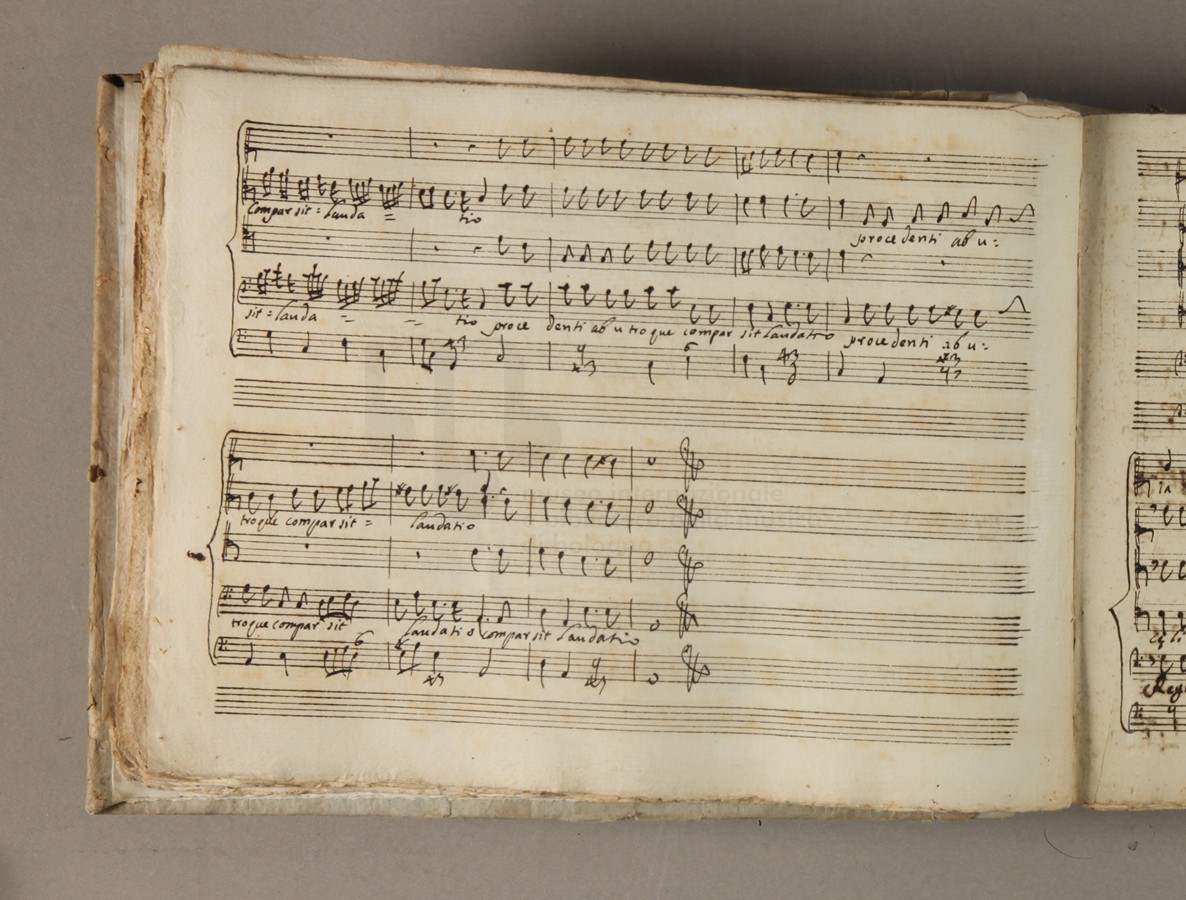 compar sit = lauda = tio
procedenti ab u:
sit = lauda = = tio proce denti ab utroque compar sit laudatio procedenti ab u:
6
troque compar sit = laudatio
museo internazionale
di bologna
troque compar sit laudatio compar sit laudatio
6
in